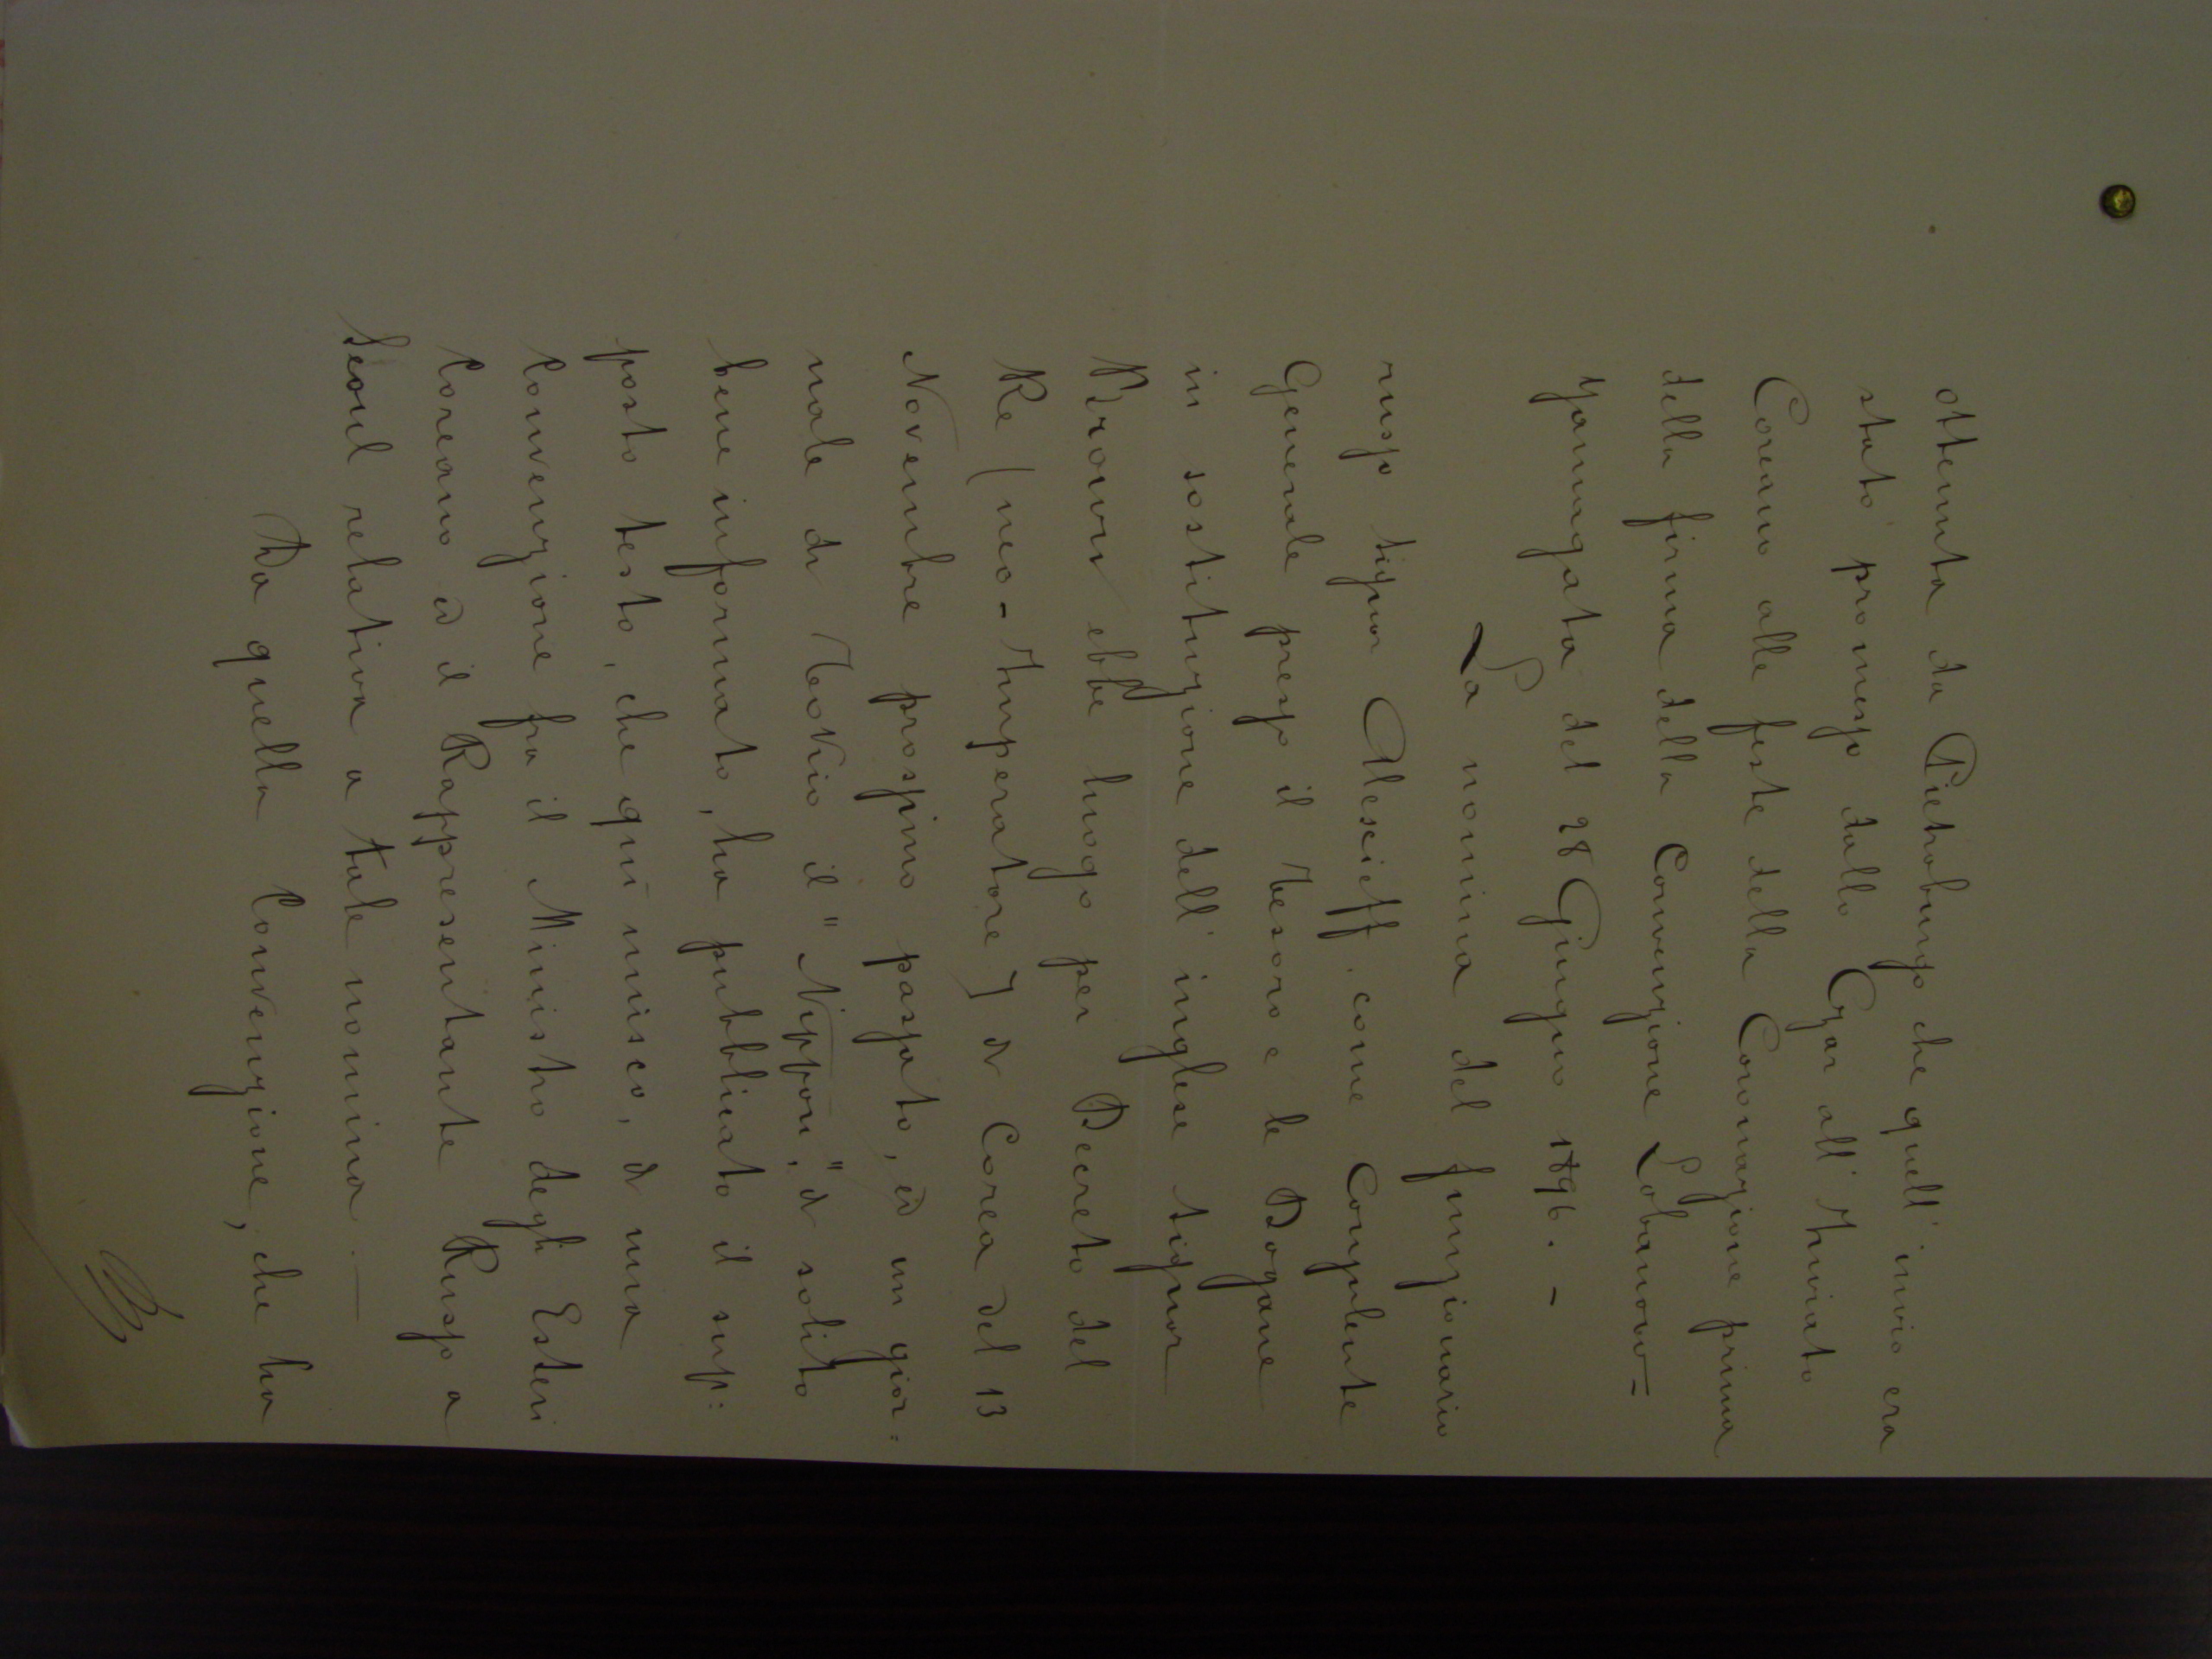 ottenuta da Pietroburgo che quell'invio era
stato promesso dallo Czar all'Inviato
Coreano alle feste della Coronazione prima
della firma della Convenzione Lobanow=
Yamagata del 28 Giugno 1896. –
La nomina del funzionario
russo signor Alexieff, come Consulente
Generale presso il Tesoro e le Dogane
in sostituzione dell'inglese signor
Brown ebbe luogo per Decreto del
Re (neo-Imperatore) di Corea del 13
Novembre prossimo passato, ed un gior=
nale di Tookio il "Nippon", di solito
bene informato, ha pubblicato il sup:
posto testo, che quì unisco, di una
Convenzione fra il Ministro degli Esteri
Coreano ed il Rappresentante Russo a
Seoul relativa a tale nomina. —
Da quella Convenzione, che ha